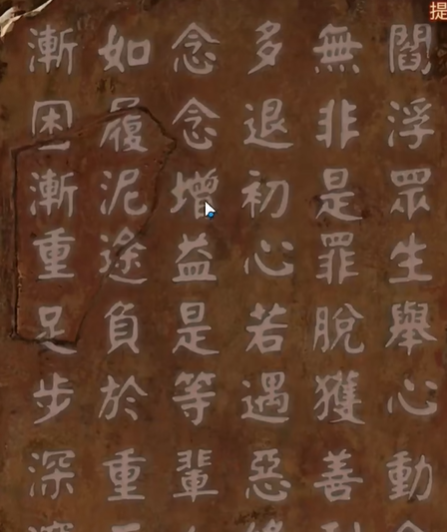 提
閻浮眾生舉心動
無非是罪脫獲善
多退初心若遇惡
念念增益是等輩
如履泥途負於重
漸困漸重足步深